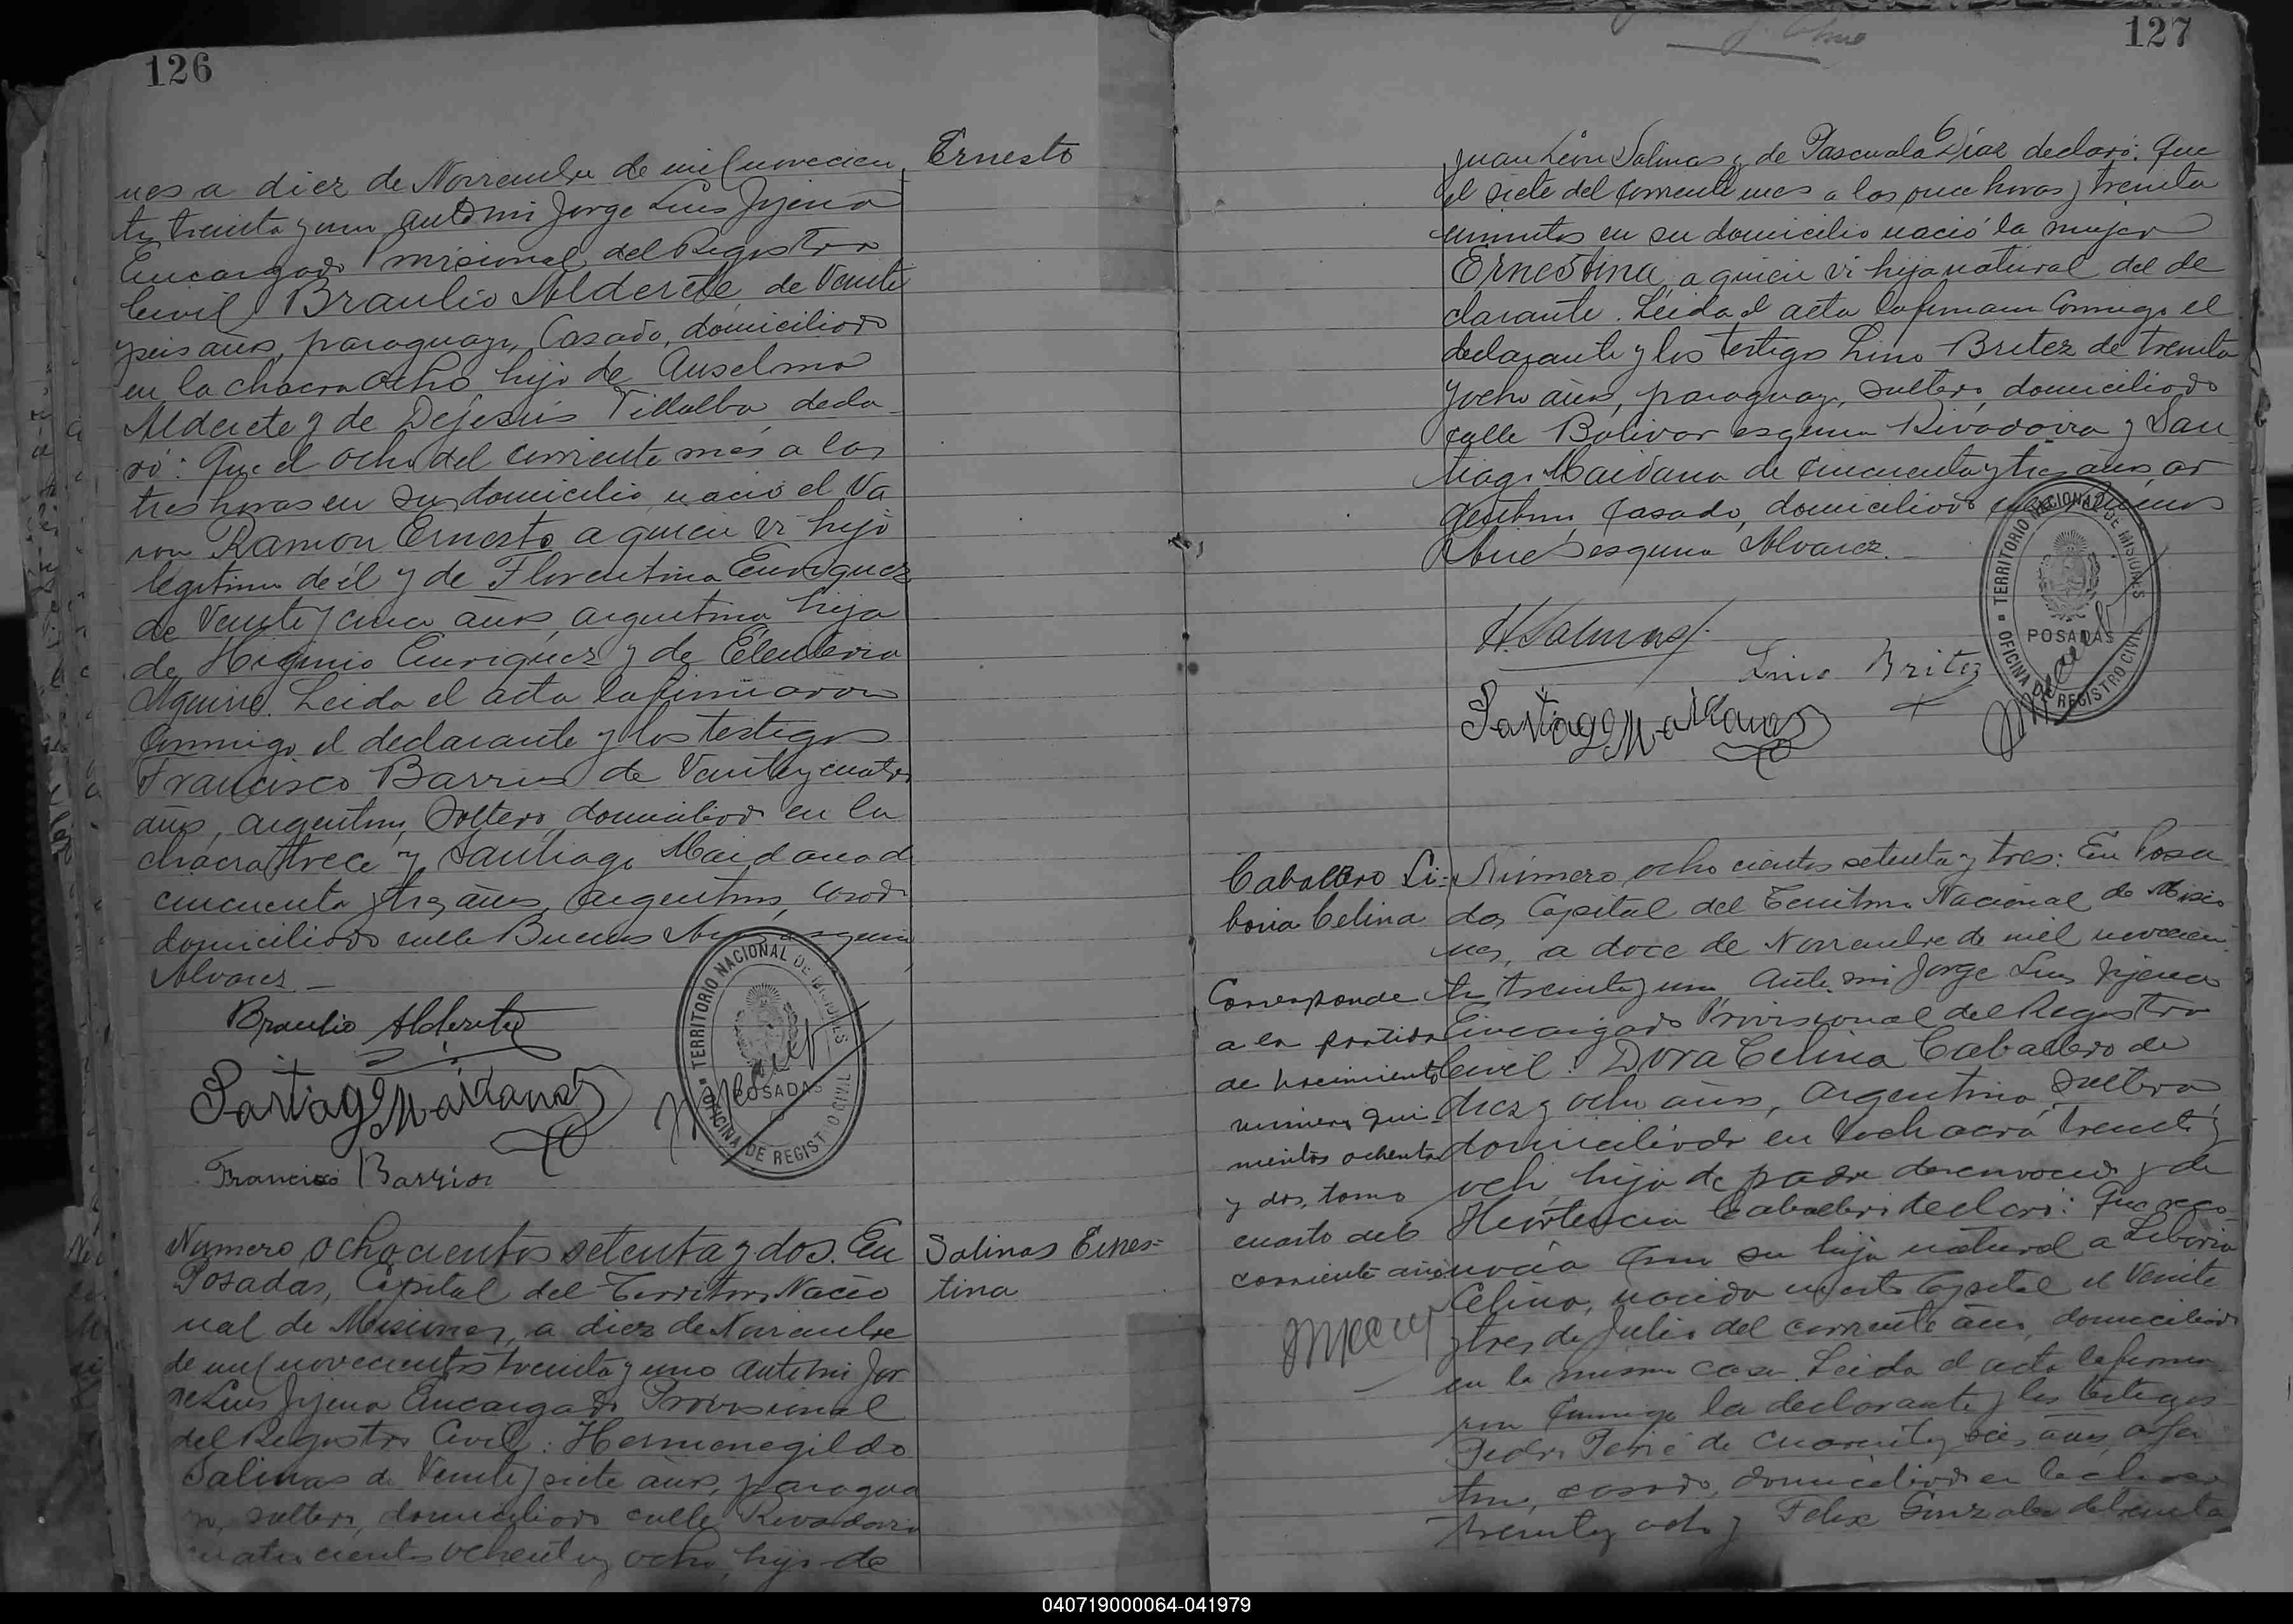 126
Ernesto
nes a diez de Noviembre de mil novecien
tos treinta y uno ante mi Jorge Luis Jijena
Encargado Provisional del Registro
Civil Braulio Alderete, de Veinte
y seis años, paraguayo, Casado, domiciliado
en la chacra ocho hijo de Anselmo
Alderete y de Dejesús Villalba, decla
ró: Que el ocho del corriente mes a las
tres horas en su domicilio nació el Va
ron Ramon Ernesto a quien vi hijo
legitimo de él y de Florentina Enriquez
de Veinte y cinco años, argentina hija
de Higinio Enriquez y de Eleuteria
Aguirre. Leida el acta la firmaron
Conmigo el declarante y los testigos
Francisco Barrios de Veinte y cuatro
años, argentino, Soltero, domiciliado en la
chacra trece y Santiago Maidana d
cincuenta y tres años, argentino, casado
domiciliado calle Buenos Aires esquina
Alvarez. —
Braulio Alderete
Santiago Maidana
Francisco Barrios
TERRITORIO NACIONAL DE MISIONES
POSADAS
OFICINA DE REGISTRO CIVIL
Salinas Ernes=
tina
Numero ochocientos setenta y dos. En
Posadas, Capital del Territorio Nacio
nal de Misiones, a diez de Noviembre
de mil novecientos treinta y uno ante mi Jor
ge Luis Jijena Encargado Provisional
del Registro Civil: Hermenegildo
Salinas de Veinte y siete años, paragua
yo, soltero, domiciliado calle Rivadavia
cuatrocientos ochenta y ocho, hijo de
127
Juan León Salinas y de Pascuala Díaz declaró: Que
el siete del corriente mes a las once horas y treinta
minutos en su domicilio nació la mujer
Ernestina, a quien vi hija natural del de
clarante. Leida el acta la firman Conmigo el
declarante y los testigos Lino Britez de treinta
y ocho años, paraguayo, soltero, domiciliado
calle Bolivar esquina Rivadavia y San
tiago Maidana de cincuenta y tres años, ar
gentino, casado, domiciliado calle Buenos
Aires esquina Alvarez. —
H. Salinas
Lino Britez
Santiago Maidana
TERRITORIO NACIONAL DE MISIONES
POSADAS
OFICINA DE REGISTRO CIVIL
Caballero Li=
boria Celina
Corresponde
a la partida
de nacimiento
número qui
nientos ochenta
y dos, tomo
cuarto del
corriente año
Número ochocientos setenta y tres: En Posa
das Capital del Territorio Nacional de Misio
nes, a doce de Noviembre de mil novecien
tos treinta y uno Ante mi Jorge Luis Jijena
Encargado Provisional del Registro
Civil: Dora Celina Caballero de
diez y ocho años, Argentina, Soltera,
domiciliada en la chacra treinta y
ocho, hija de padre desconocido y de
Hortencia Caballero declaró: Que reco
nocía como su hija natural a Liboria
Celina, nacida en esta Capital el Veinte
y tres de Julio del corriente año, domiciliada
en la misma casa. Leida el acta la firma
ron Conmigo la declarante y los testigos
Pedro de cuarenta y seis años, argen
tino, casado, domiciliado en la chacra
treinta y ocho y Felix Gonzalez de treinta
040719000064-041979